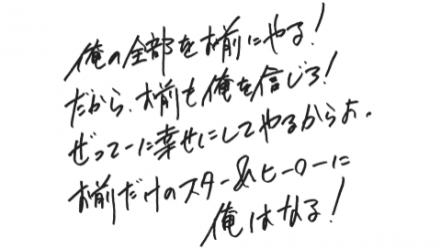 俺の全部をお前にやる!
だから、お前も俺を信じろ!
ぜってーに幸せにしてやるからよ。
お前だけのスター&ヒーローに
俺はなる!